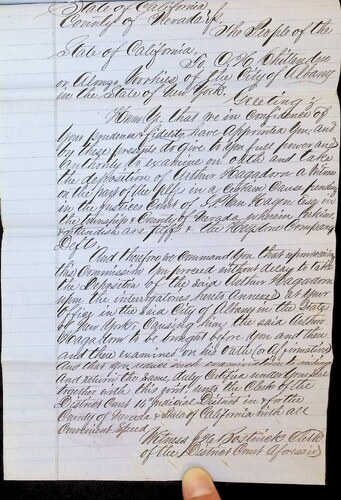 State of California
County of Nevada ss.
The People of the
State of California
To O. H. Chittenden
or Alonzo Voorhies of the City of Albany
in the State of New York.
Greeting
Know Ye, that we in confidence of
Your prudence & fidelity have Appointed You, and
by these presents do give to you full power and
authority to examine on oath and take
the deposition of Arthur Hagadorn a Witness
on the part of the plffs in a certain Cause pending
in the Justices Court of Van Hagen Esq. in
the Township & County of Nevada, wherein Perkins
& Standish are plffs & the Keystone Company
Defts
And therefore we Command You that upon receiving
this Commission You proceed without delay to take
the Deposition of the said Arthur Hagadorn
upon the interrogatories hereto Annexed at your
Office in the said City of Albany in the State
of New York, Causing him, the said Arthur
Hagadorn to be brought before You and then
and there examined on his Oath (or Affirmation)
And that you reduce such examination to writing
And return the same, duly Certified under your
together with this writ unto the Clerk of the
District Court Judicial District in & for the
County of Nevada & State of California with all
Convenient Speed
Witness Bostwick Clerk
of the District Court Aforesaid